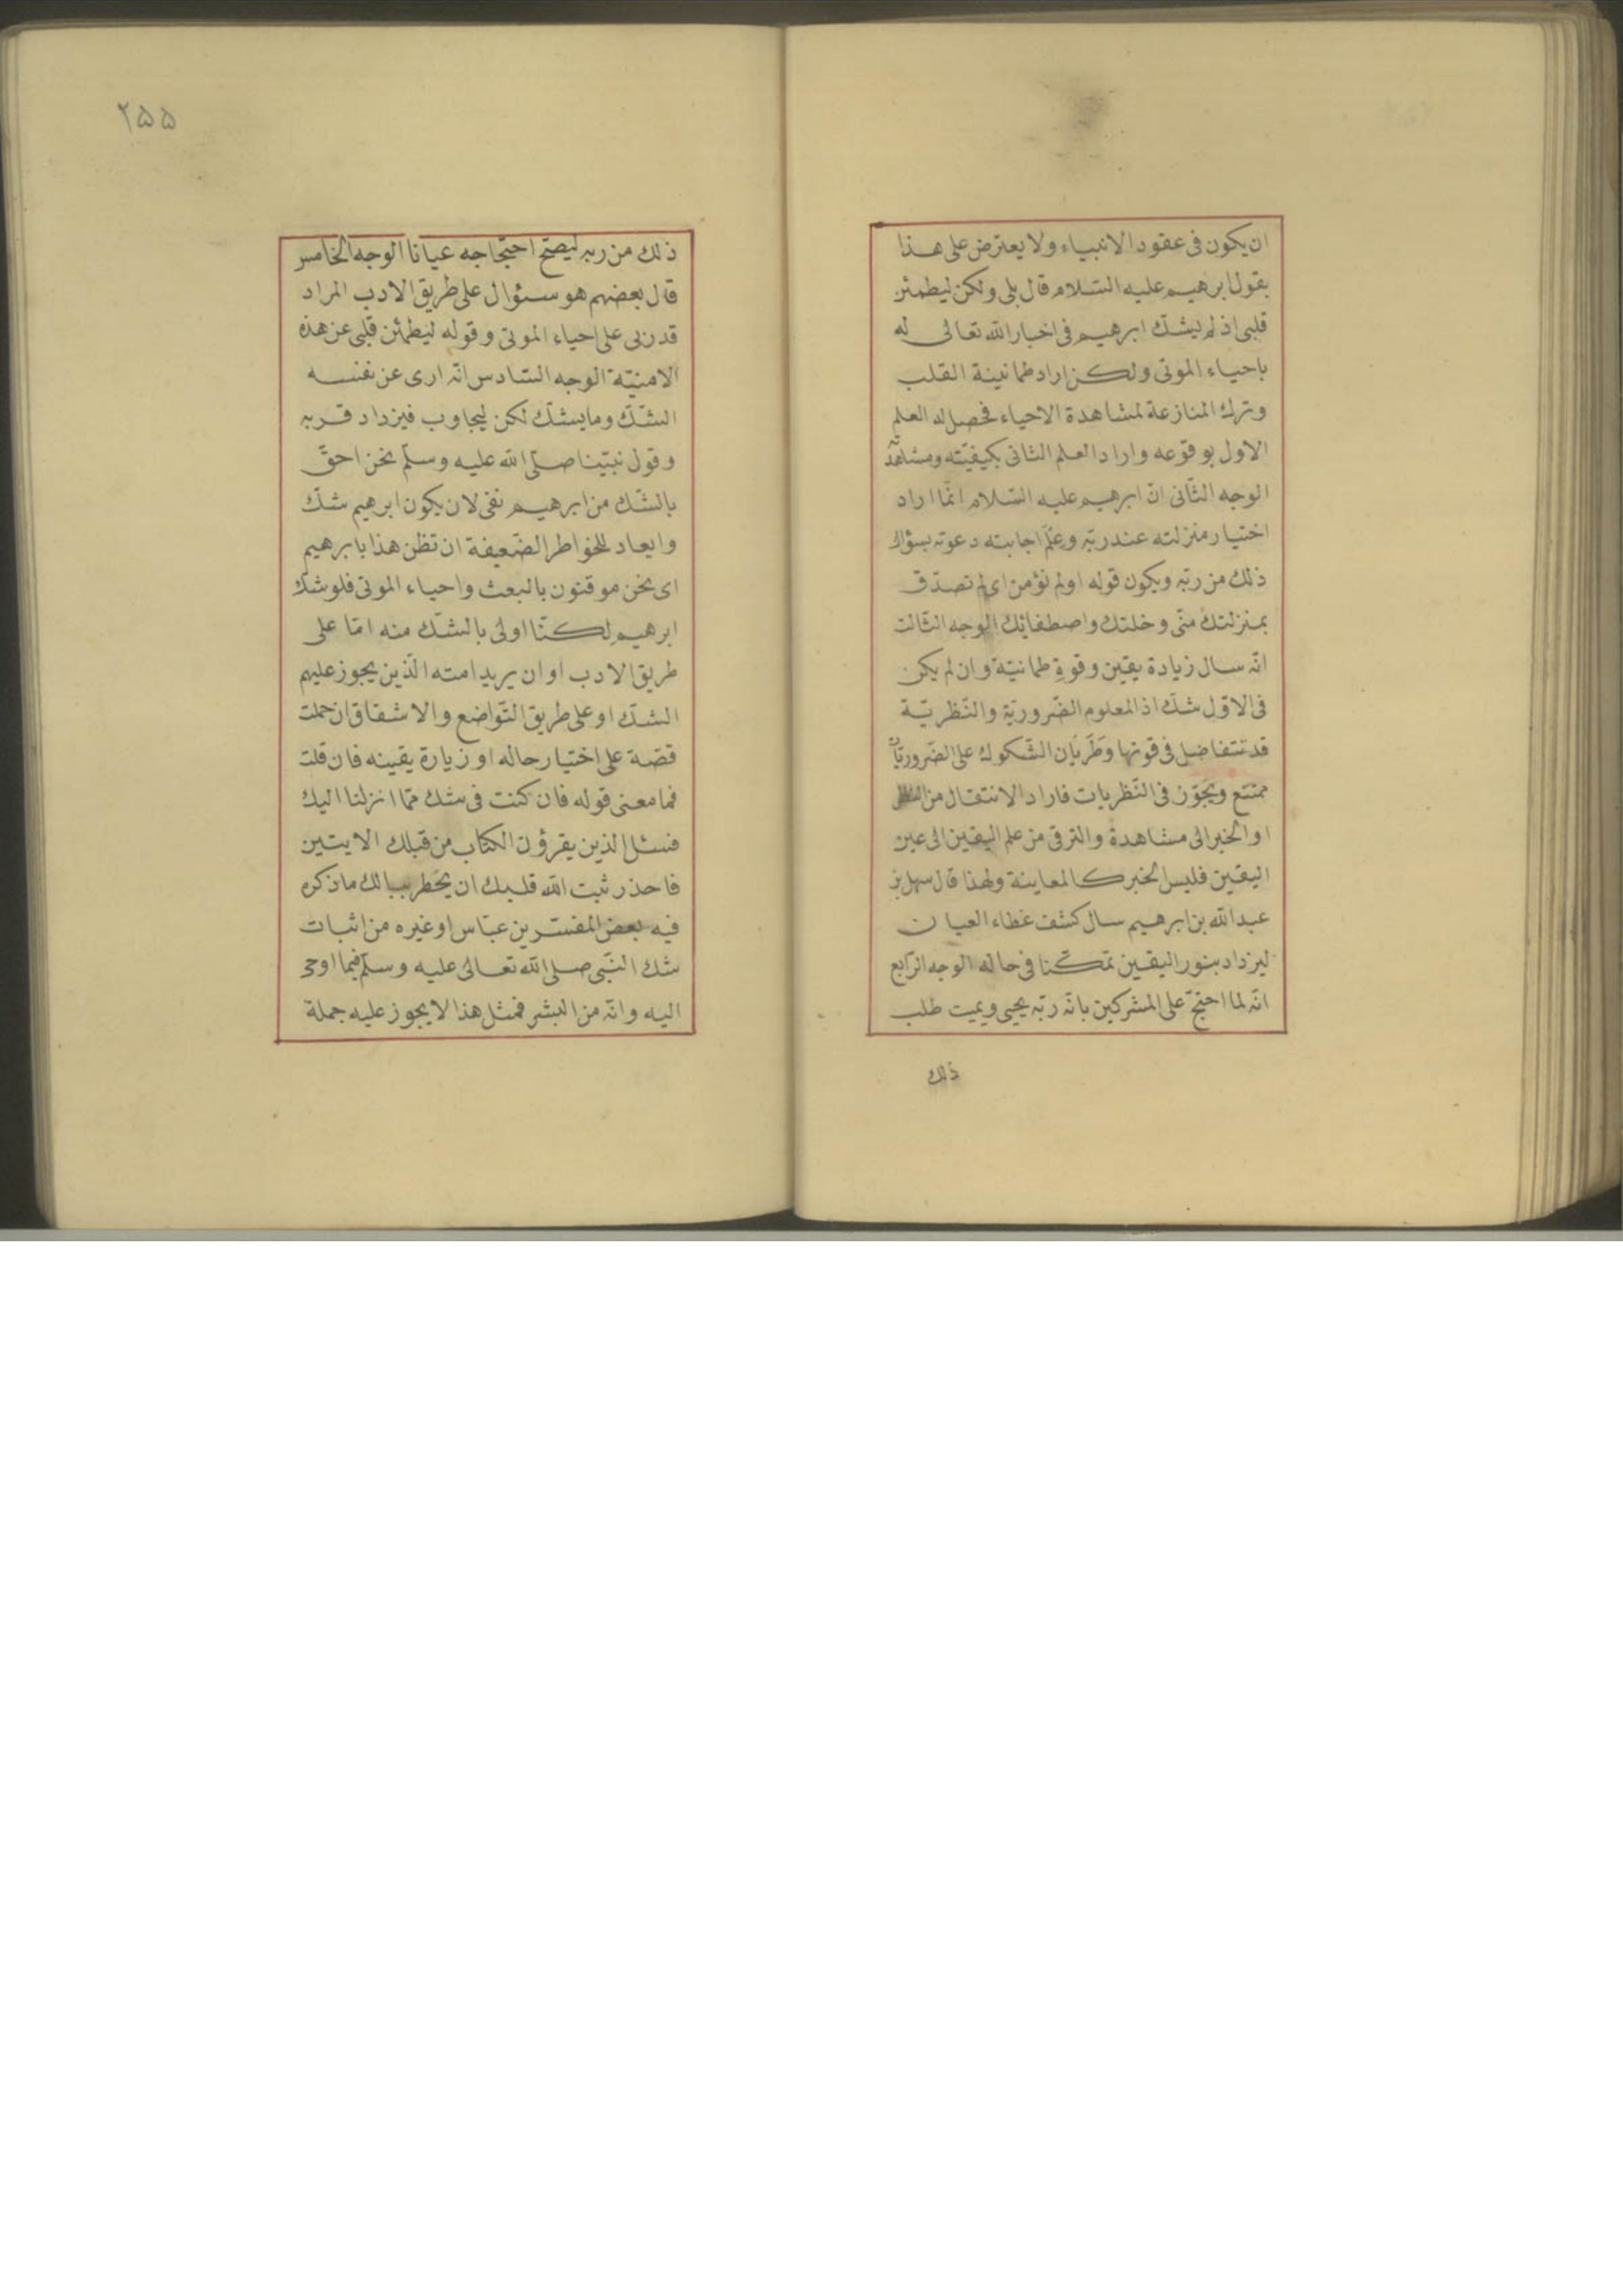 ان يكون فى عقود الانبياء ولا يعترض على هذا
بقول ابرهيم عليه السّلام قال بلى ولكن ليطمئن
قلبى اذ لم يشك ابرهيم فى اخبار الله تعالى له
باحياء الموتى ولكن اراد طمانينة القلب
وترك المنازعة لمشاهدة الاحياء فحصل له العلم
الاول بوقوعه واراد العلم الثانى بكيفيّته ومشاهدته
الوجه الثّانى انّ ابرهيم عليه السّلام انّما اراد
اختيار منزلته عند ربّه وعلم اجابته دعوته بسؤال
ذلك من ربّه ويكون قوله اولم تؤمن اى لم تصدّق
بمنزلتك منّى وخلتك واصطفائك الوجه الثّالث
انّه سال زيادة يقين وقوة طمانيّة وان لم يكن
فى الاوّل شك اذ المعلوم الضّروريّة والنّظريّة
قد تتفاضل فى قوتها وطريان الشّكوك على الضّروريّات
ممتنع ويجوّز فى النّظريات فاراد الانتقال من النظر
او الخبر الى مشاهدة والترقى من علم اليقين الى عين
اليقين فليس الخبر كالمعاينة ولهذا قال سهل بن
عبد الله بن ابرهيم سال كشف غطاء العيان
ليزداد بنور اليقين تمكّنا فى حاله الوجه الرّابع
انّه لما احتجّ على المشركين بانّه ربّه يحيى ويميت طلب
ذلك
٢٥٥
ذلك من ربه ليصحّ احتجاجه عيانا الوجه الخامس
قال بعضهم هو سؤال على طريق الادب المراد
قدرنى على احياء الموتى وقوله ليطمئن قلبى عن هذه
الامنيّة الوجه السّادس انّه ارى عن نفسه
الشّك وما يشك لكن ليجاوب فيزداد قربه
وقول نبيّنا صلّى الله عليه وسلّم نحن احقّ
بالشّك من ابرهيم نفى لان يكون ابرهيم شك
وابعاد للخواطر الضّعيفة ان تظن هذا بابرهيم
اى نحن موقنون بالبعث واحياء الموتى فلو شك
ابرهيم لكنّا اولى بالشّك منه امّا على
طريق الادب او ان يريد امته الّذين يجوز عليهم
الشك او على طريق التّواضع والاشفاق ان حملت
قصّة على اختيار حاله او زيارة يقينه فان قلت
فما معنى قوله فان كنت فى شك ممّا انزلنا اليك
فسئل الذين يقرؤن الكتاب من قبلك الايتين
فاحذر ثبت الله قلبك ان يخطر ببالك ما ذكره
فيه بعض المفسّرين عبّاس او غيره من اثبات
شك النّبى صلى الله تعالى عليه وسلّم فيما اوحى
اليه وانّه من البشر فمثل هذا لا يجوز عليه جملة